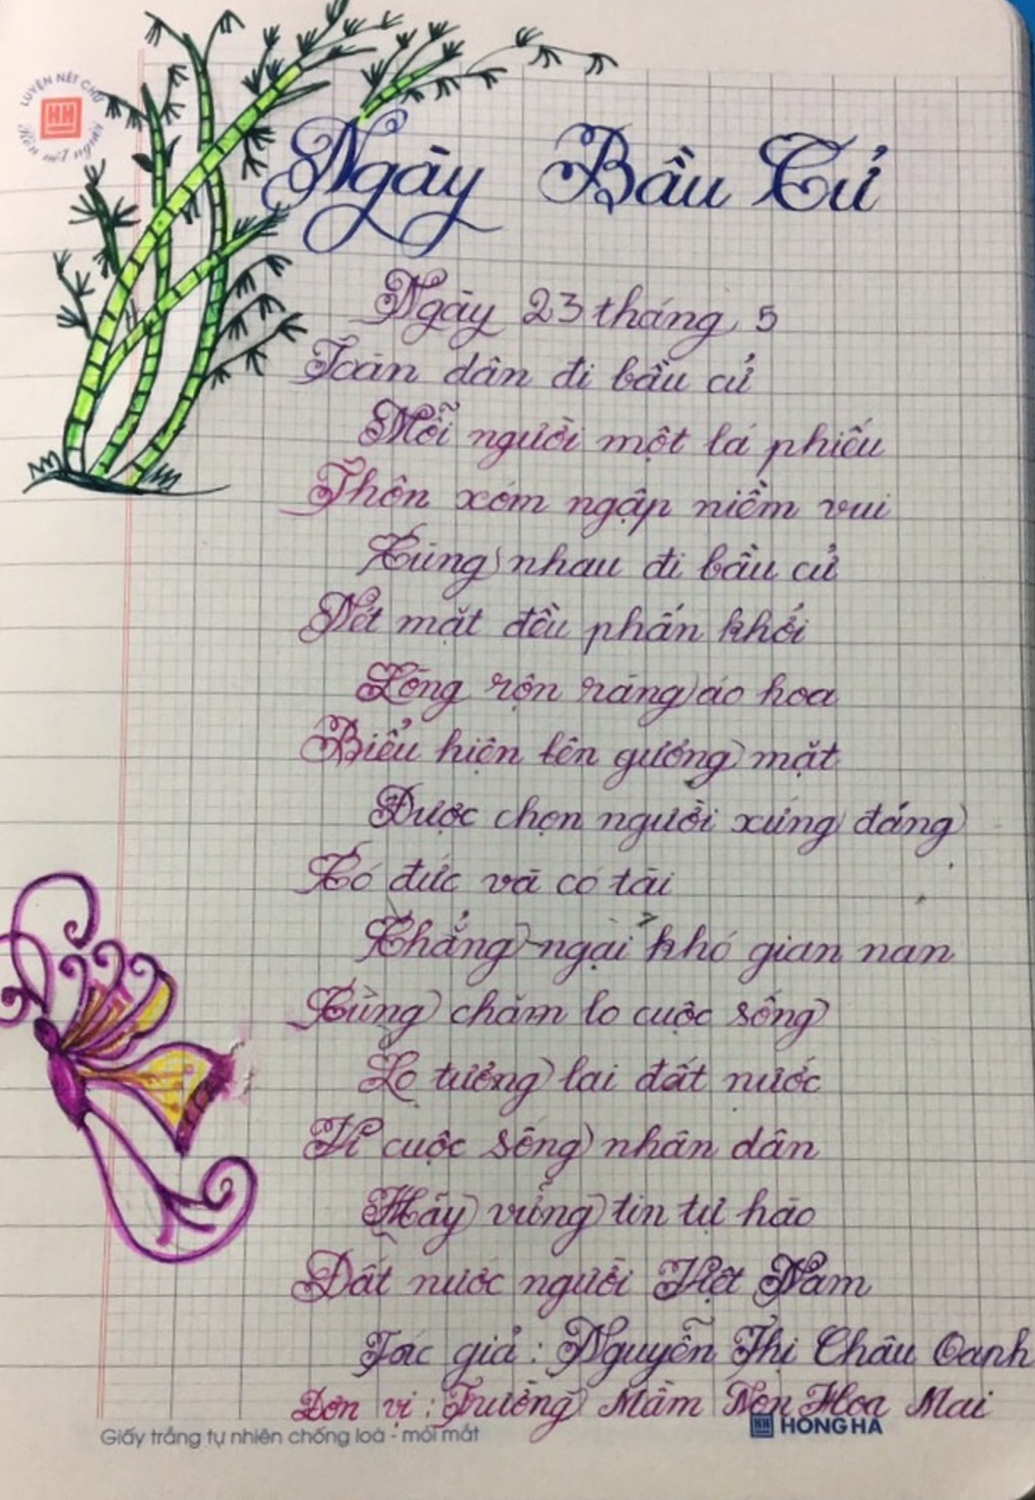 LUYỆN NÉT CHỮ
Rèn nết người
Ngày Bầu Cử
Ngày 23 tháng 5
Toàn dân đi bầu cử
Mỗi người một lá phiếu
Thôn xóm ngập niềm vui
Cùng nhau đi bầu cử
Nét mặt đều phấn khởi
Lòng rộn ràng áo hoa
Biểu hiện lên gương mặt
Được chọn người xứng đáng
Có đức và có tài
Chẳng ngại khó gian nan
Cùng chăm lo cuộc sống
Lo tương lai đất nước
Vì cuộc sống nhân dân
Hãy vững tin tự hào
Đất nước người Việt Nam
Tác giả : Nguyễn Thị Châu Oanh
Đơn vị : Trường Mầm Non Hoa Mai
HỒNG HÀ
Giấy trắng tự nhiên chống loá - mỏi mắt